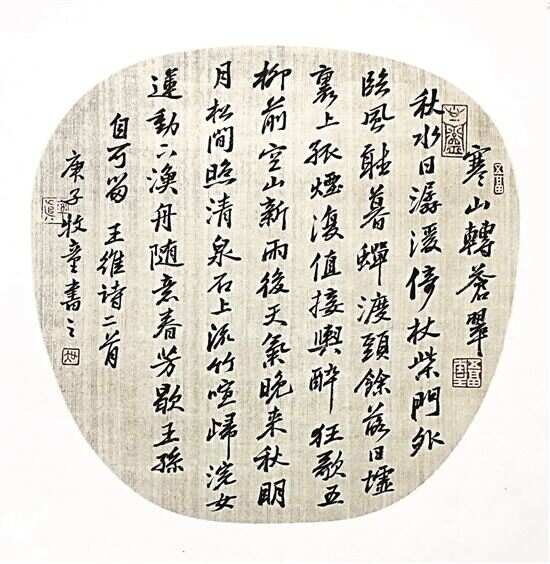 寒山轉蒼翠
秋水日潺湲倚杖柴門外
臨風聽暮蟬渡頭餘落日墟
裏上孤煙復值接輿醉狂歌五
柳前空山新雨後天氣晚来秋明
月松間照清泉石上流竹喧歸浣女
蓮動下漁舟随意春芳歇王孫
自可留 王维诗二首
庚子牧童書之